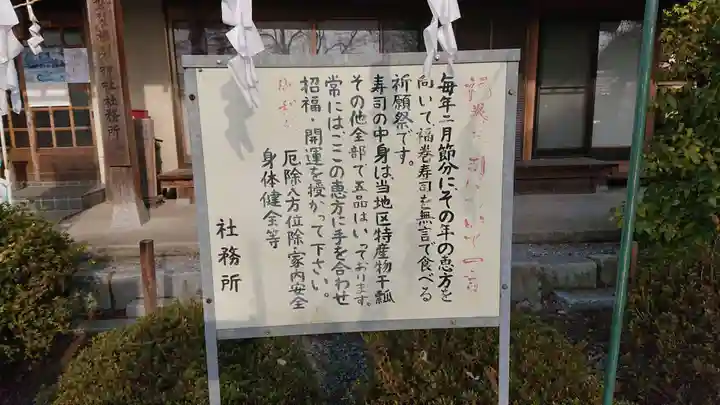 福巻寿司について一言
毎年二月節分に、その年の恵方を
向いて、福巻寿司を無言で食べる
祈願祭です。
寿司の中身は、当地区特産物干瓢
その他全部で五品はいっております。
常には、ここの恵方に手を合わせ
招福・開運を授かって下さい。
厄除八方位除・家内安全
身体健全等
社務所
神社社務所